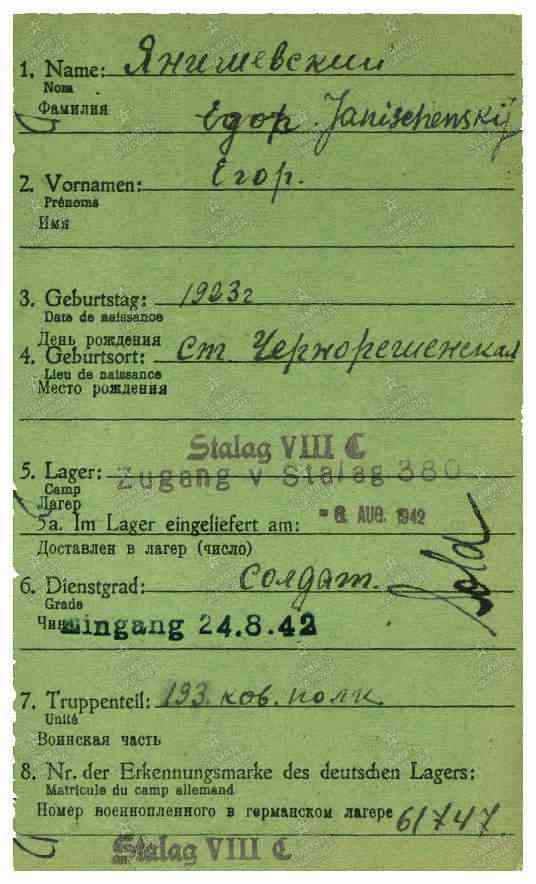 1. Name: Янишевский
Nom
Фамилия
Егор. Janischenskij
2. Vornamen: Егор.
Prénoms
Имя
3. Geburtstag: 1923г
Date de naissance
День рождения
4. Geburtsort: ст. Чернорешенская
Lieu de naissance
Место рождения
Stalag VIII C
5. Lager: Zugang v Stalag 380
Camp
Лагер
5a. Im Lager eingeliefert am: - 6. AUG. 1942
Доставлен в лагер (число)
6. Dienstgrad: солдат. Sold
Grade
Чин Eingang 24.8.42
7. Truppenteil: 193 кав. полк
Unité
Воинская часть
8. Nr. der Erkennungsmarke des deutschen Lagers:
Matricule du camp allemand
Номер военнопленного в германском лагере 61747.
Stalag VIII C